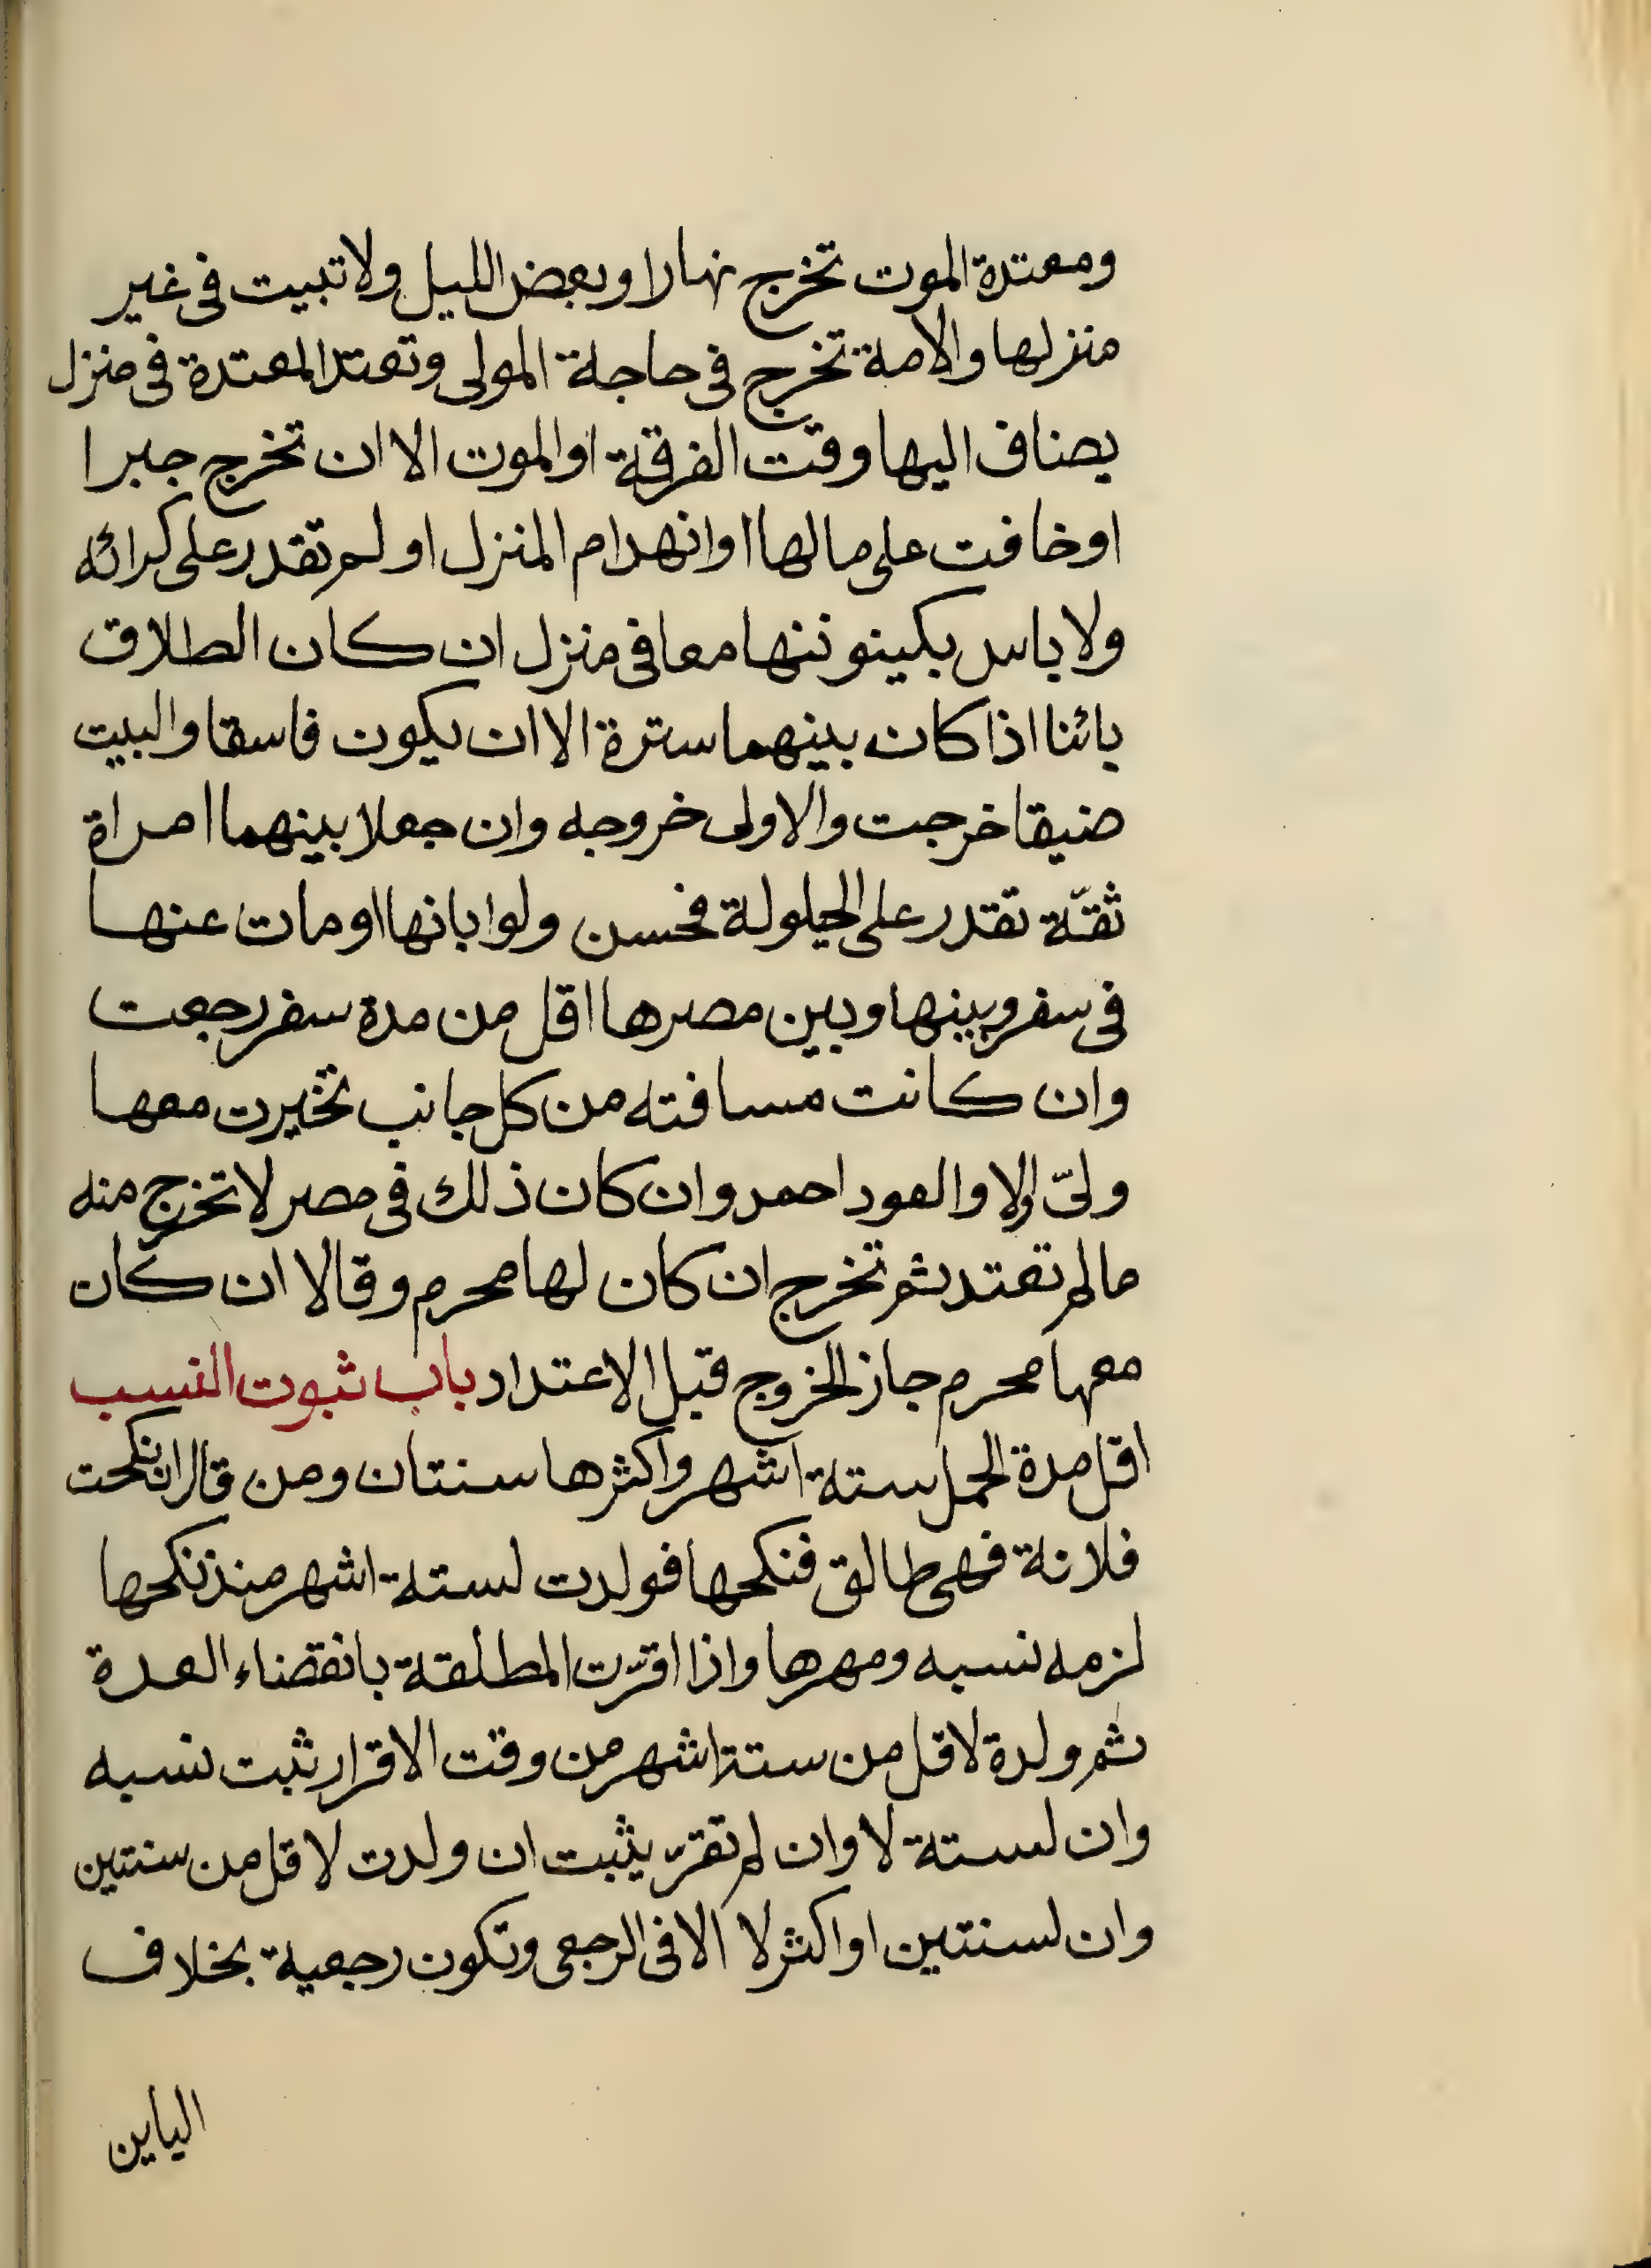 ومعتدة الموت تخرج نهارا وبعض الليل ولا تبيت فى غير
منزلها والامة تخرج فى حاجة المولى وتعتد المعتدة فى منزل
يضاف اليها وقت الفرقة او الموت الا ان تخرج جبرا
او خافت على مالها او انهدام المنزل او لم تقدر على كرائه
ولا باس بكينونتها معا فى منزل ان كان الطلاق
بائنا اذا كان بينهما سترة الا ان يكون فاسقا والبيت
ضيقا خرجت والاولى خروجه وان جعلا بينهما امراة
ثقّة تقدر على الحيلولة فحسن ولو ابانها او مات عنها
فى سفر وبينها وبين مصرها اقل من مدة سفر رجعت
وان كانت مسافته من كل جانب تخيرت معها
ولىّ اولا والعود احمد وان كان ذلك فى مصر لا تخرج منه
ما لم تعتد ثم تخرج ان كان لها محرم وقالا ان كان
معها محرم جاز الخروج قبل الاعتداد باب ثبوت النسب
اقل مدة الحمل ستة اشهر واكثرها سنتان ومن قال ان نكحت
فلانة فهى طالق فنكحها فولدت لستة اشهر منذ نكحها
لزمه نسبه ومهرها واذا اقرّت المطلقة بانقضاء العدة
ثم ولدة لاقل من ستة اشهر من وقت الاقرار ثبت نسبه
وان لستة لا وان لم تقرّ يثبت ان ولدت لاقل من سنتين
وان لسنتين او اكثر لا الا فى الرجعى وتكون رجعية بخلاف
الياين